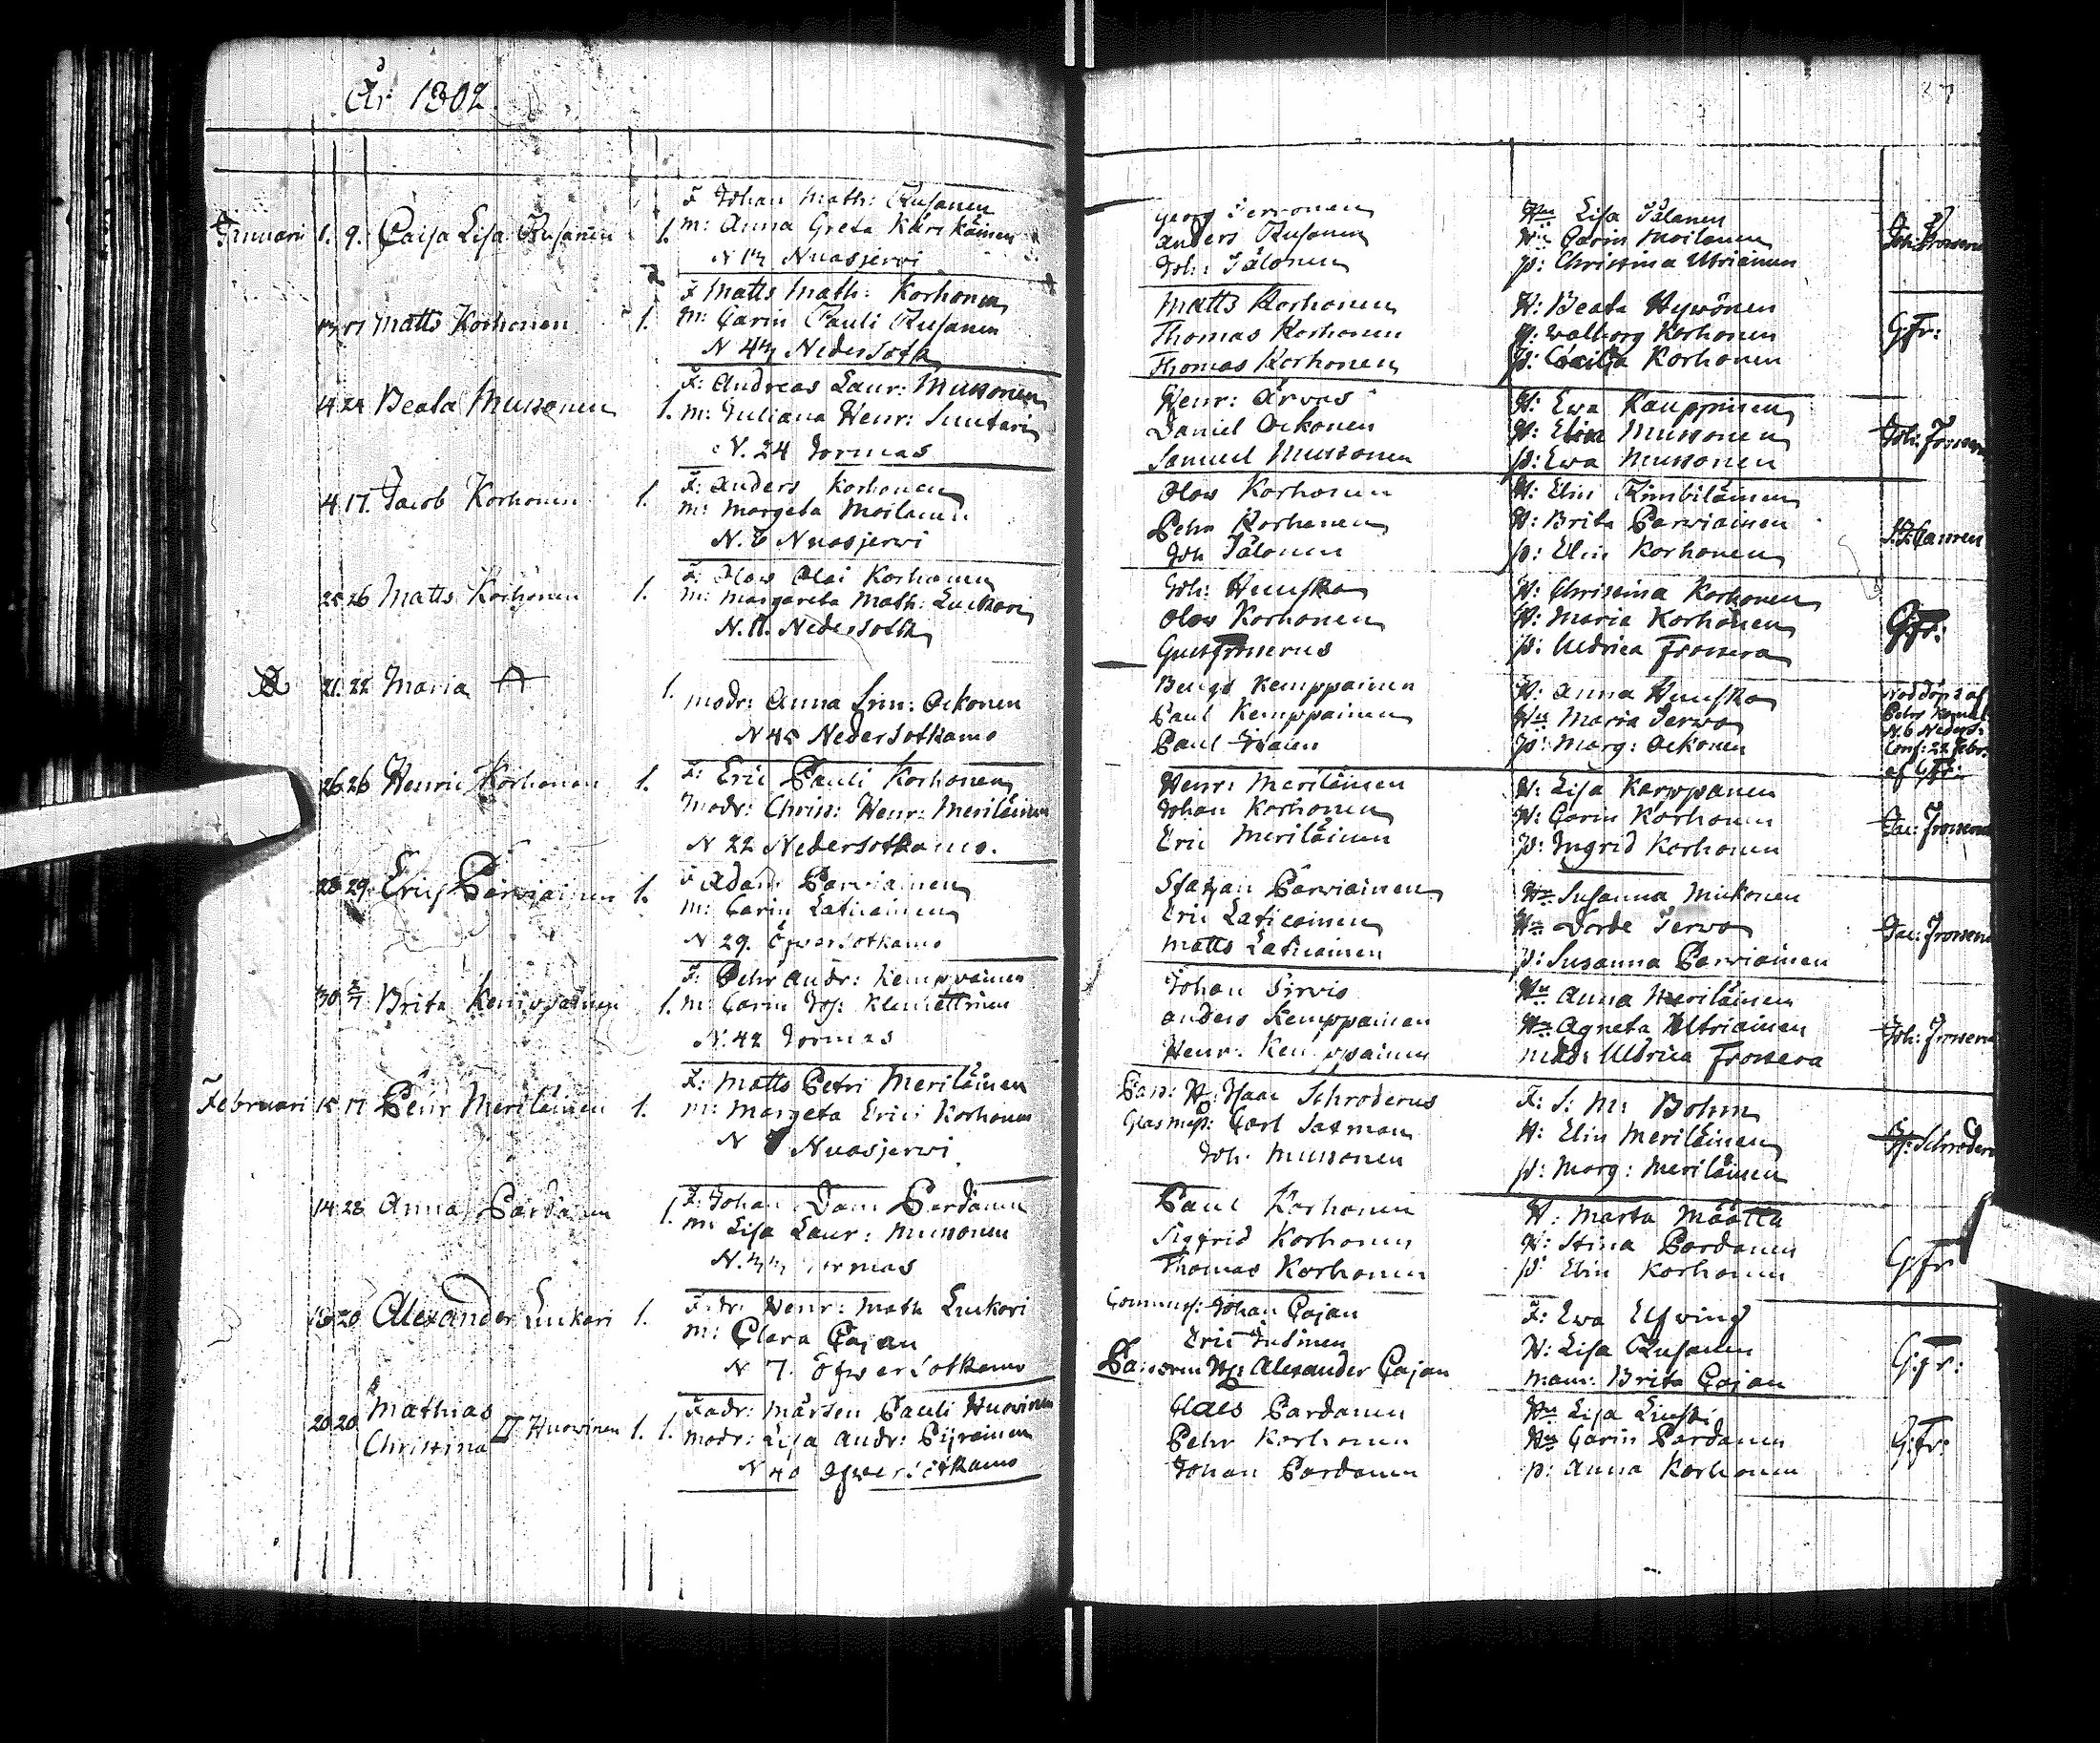 År 1802.
Januarii 1. 9. Caisa Lisa Rusanen 1.
F Johan Math: Rusanen
m: Anna Greta Karikäinen
N 13 Nuasjervi
Matts Korhonen 1.
F Matts Math: Korhonen
m: Carin Pauli Rusanen
N 43 Nedersotk
14 24 Beata Mussonen 1.
F: Andreas Laur: Mussonen
m: Juliana Henr: Suutari
N. 24 Jormas
4. 17. Jacob Korhonen 1.
F: Anders Korhonen
m: Margeta Moilanen
N. 6 Nuasjerwi
25 26 Matts Korhonen 1.
F: Olow Olai Korhonen
m: Margareta Math: Luckari
N. 11. Nedersotk
21. 22 Maria 1.
modr: Anna Sim: Ockonen
N 45 Nedersotkamo
26 26 Henric Korhonen 1.
F: Eric Pauli Korhonen
Modr: Chris: Henr: Meriläinen
N 22 Nedersotkamo.
28 29. Eric Parviainen 1.
F Adam Parviainen
m: Carin Laticainen
N 29. Öfwersotkamo
30 Brita Kemppainen 1.
F: Pehr Andr: Kemppainen
m: Carin Jos: Klemettinen
N. 42 Jormas
Februari 15 17 Pehr Meriläinen 1.
F: Matts Petri Meriläinen
m: Margeta Erici Korhonen
N Nuasjerwi
14 28 Anna Pardanen 1.
F: Johan Dan Pardanen
m: Lisa Laur: Mussonen
N. 33 Jormas
18 20 Alexander Luckari 1.
F:dr: Henr: Math Luckari
m: Clara Cajan
N 7. Öfwersotkamo
20 20 Mathias
Christina Huovinen 1. 1.
Fadr: Mårten Pauli Huovinen
Modr: Lisa Andr: Pijrainen
N 40 Öfwersotkamo
Anders Rusanen
Joh: Jälonen
Hu Lisa Jälonen
Hu Carin Moilanen
p: Christina Utriainen
Matts Korhonen
Thomas Korhonen
Thomas Korhonen
H: Beata Hywönen
H: Walborg Korhonen
p: Cecilia Korhonen
G:Fr:
Henr: Arvas
Daniel Ockonen
Samuel Mussonen
H: Ewa Kauppinen
H: Elin Mussonen
p: Ewa Mussonen
Olow Korhonen
Pehr Korhonen
Joh Jälonen
H: Elin Kimbiläinen
H: Brita Parviainen
p: Elin Korhonen
Joh: Huusko
Olow Korhonen
Gust Froserus
H: Christina Korhonen
H: Maria Korhonen
p: Uldrica Frosera
G:Fr:
Bengt Kemppainen
Paul Kemppainen
H: Anna Huusko
Hu Maria Terwo
p: Marg: Ockonen
Nöddöpt af
Conf: 22 Febr:
af GFr:
Henr: Meriläinen
Johan Korhonen
Eric Meriläinen
H: Lisa Karppanen
H: Carin Korhonen
p: Ingrid Korhonen
Staffan Parviainen
Eric Laticainen
Matts Laticainen
Hu Susanna Mickonen
Hu Dorde Terwo
p: Susanna Parviainen
Johan Sirvio
Anders Kemppainen
Henr: Kemppainen
Hu Anna Meriläinen
Hu Agneta Utriainen
Mad: Uldrica Frosera
Past: H: Isaac Schroderus
Glasmäst: Carl Saxman
Joh. Mussonen
F: S: M: Bohm
H: Elin Meriläinen
p: Marg: Meriläinen
Paul Korhonen
Sigfrid Korhonen
Thomas Korhonen
H: Marta Määttä
H: Stina Pardanen
p: Elin Korhonen
GFr
Johan Cajan
Alexander Cajan
F: Ewa Elfwing
H: Lisa Rusanen
Mam: Brita Cajan
G:Fr:
Claes Pardanen
Pehr Korhonen
Johan Pardanen
Hu Carin Pardanen
p: Anna Korhonen
G:Fr: